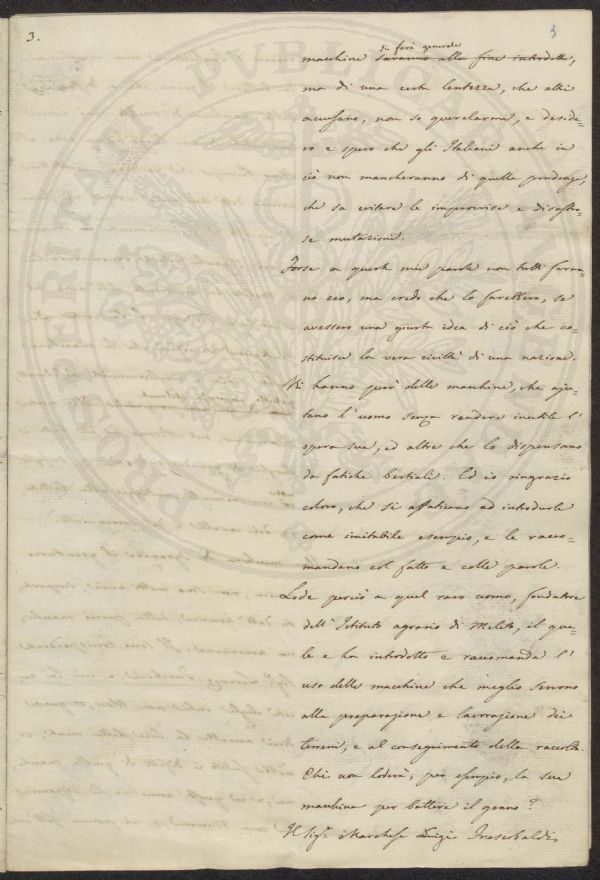 3.
3
si farà generale
macchine saranno alla fine introdotte,
ma di una certa lentezza, che altri
accusano, non so querelarmi, e deside-
ro e spero che gli Italiani anche in
ciò non mancheranno di quella prudenza,
che sa evitare le improvvise e disastro-
se mutazioni.
Forse a queste mie parole non tutti faran-
no eco, ma credo che lo farebbero, se
avessero una giusta idea di ciò che co-
stituisce la vera civiltà di una nazione.
Vi hanno però delle macchine, che aju-
tano l'uomo senza rendere inutile l'
opera sua, ed altre che lo dispensano
da fatiche bestiali. Ed io ringrazio
coloro, che si affaticano ad introdurle
come imitabile esempio, e le racco-
mandano col fatto e colle parole.
Lode perciò a quel raro uomo, fondatore
dell'Istituto agrario di Meleto, il qua-
le e ha introdotto e raccomanda l'
uso delle macchine che meglio servono
alla preparazione e lavorazione dei
terreni, e al conseguimento della raccolta.
Chi non loderà, per esempio, la sua
macchina per battere il grano?
Il Sigr. Marchese Luigi Trescobaldi
PROSPERITATI PUBLICAE